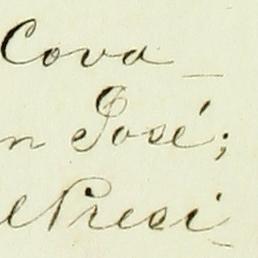 Cova_
n José;
el Presi_